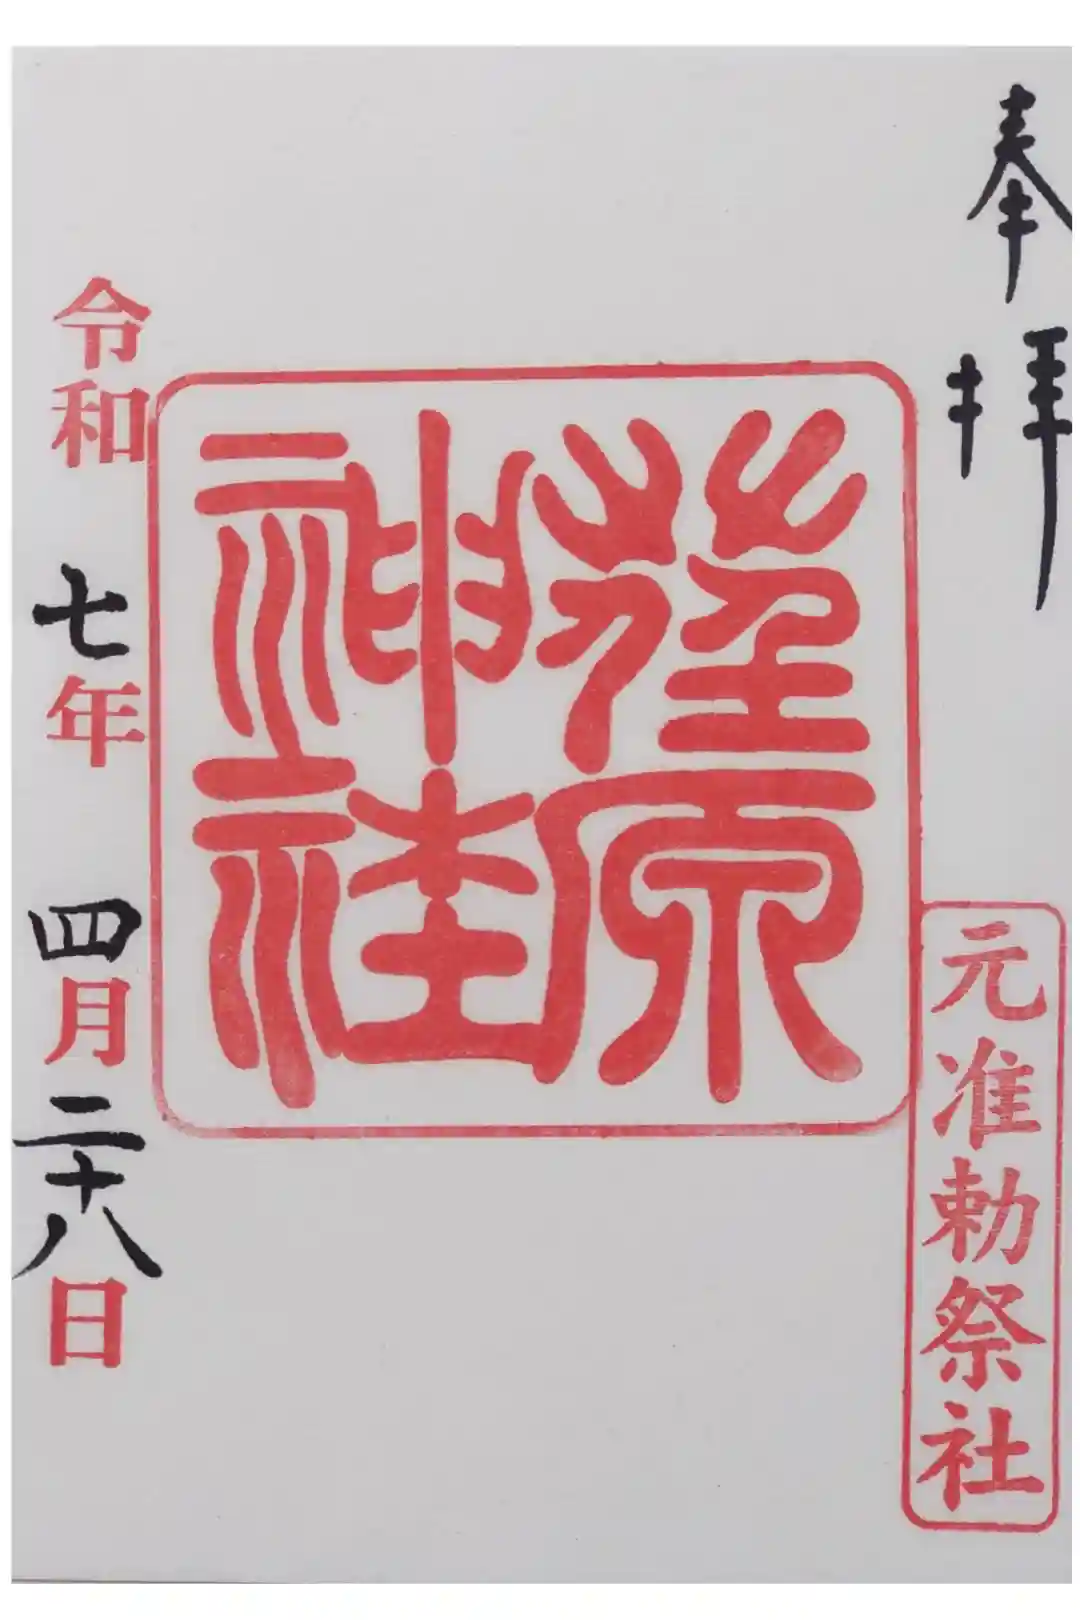 奉拝
元准勅祭社
荏原神社
令和七年四月二十八日